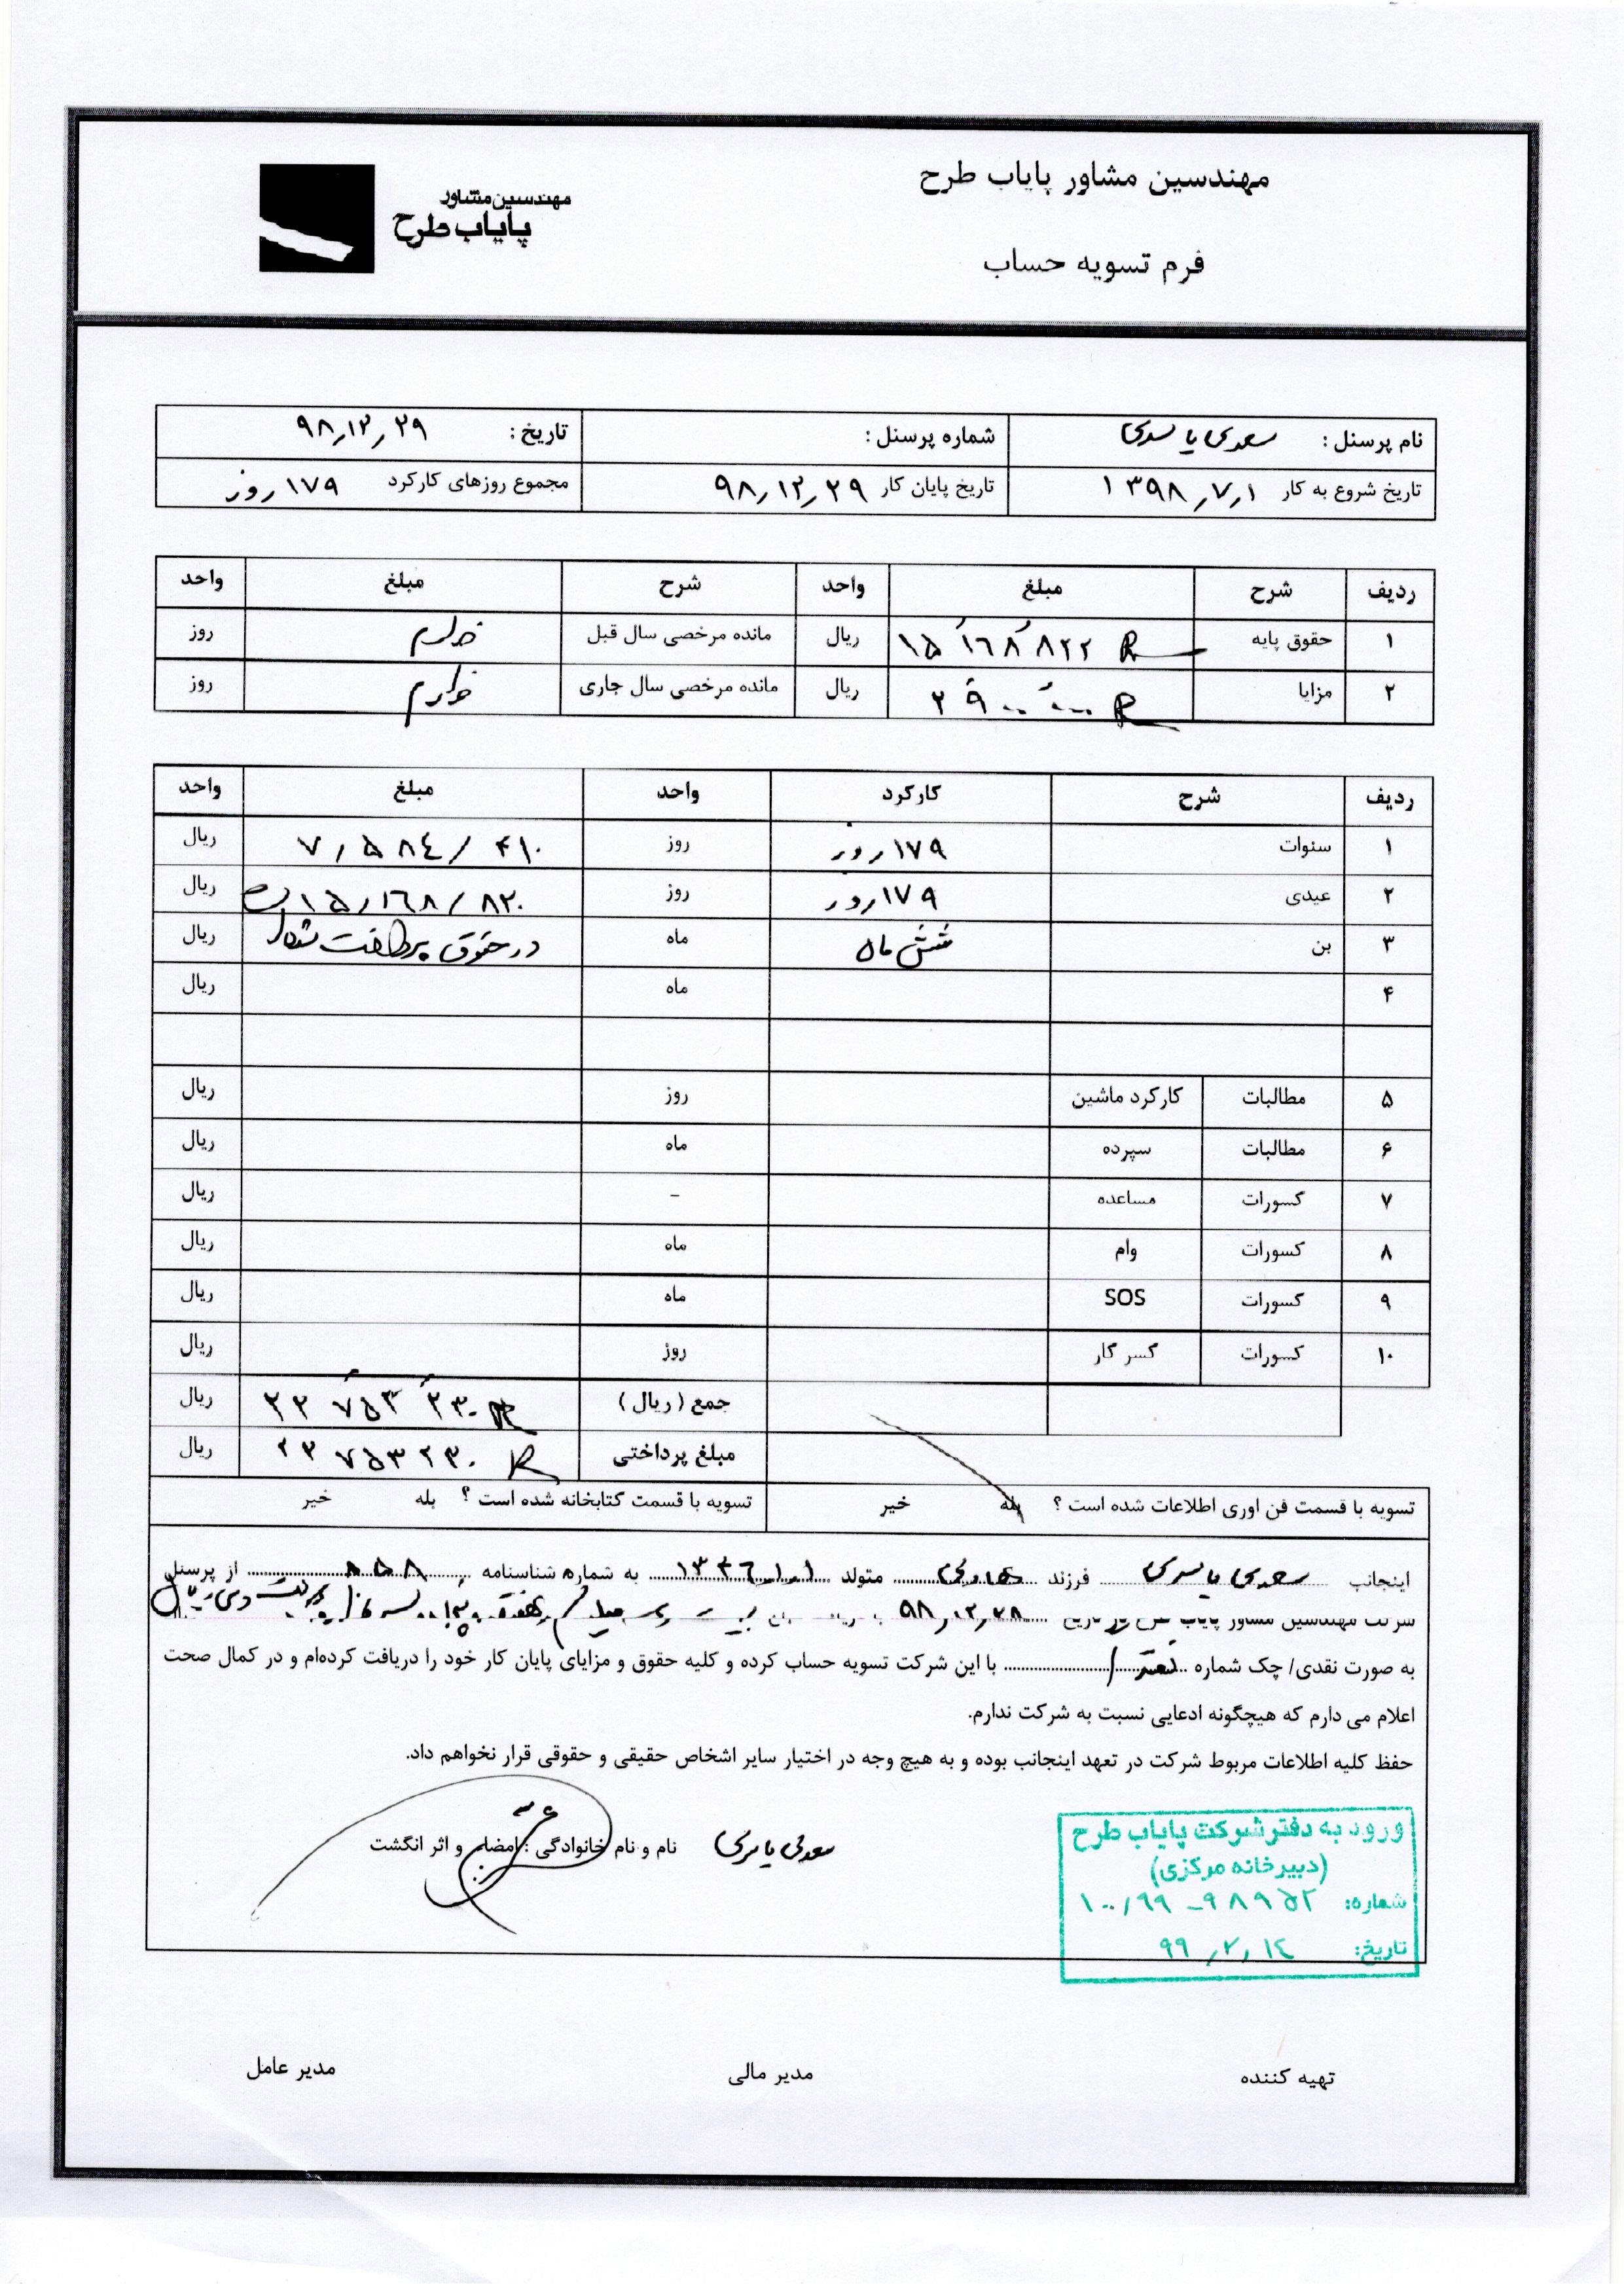 مهندسین مشاور پایاب طرح
مهندسین مشاور
پایاب طرح
فرم تسویه حساب
نام پرسنل : سعدی یاسری شماره پرسنل : تاریخ : ۹۸٫۱۲٫۲۹
تاریخ شروع به کار ۱۳۹۸٫۷٫۱ تاریخ پایان کار ۹۸٫۱۲٫۲۹ مجموع روزهای کارکرد ۱۷۹ روز
ردیف شرح مبلغ واحد شرح مبلغ واحد
۱ حقوق پایه ۱۵٬۱۶۸٬۸۲۲ R ریال مانده مرخصی سال قبل ندارم روز
۲ مزایا ۲۹۰۰٬۰۰۰ R ریال مانده مرخصی سال جاری ندارم روز
ردیف شرح کارکرد واحد مبلغ واحد
۱ سنوات ۱۷۹ روز روز ۷٫۵۸۴/۴۱۰ ریال
۲ عیدی ۱۷۹ روز روز ۱۵٫۱۶۸/۸۲۰ ریال
۳ بن شش ماه ماه در حقوق پرداخت ریال
۴ ماه ریال
۵ مطالبات کارکرد ماشین روز ریال
۶ مطالبات سپرده ماه ریال
۷ کسورات مساعده - ریال
۸ کسورات وام ماه ریال
۹ کسورات SOS ماه ریال
۱۰ کسورات کسر کار روز ریال
جمع ( ریال ) ۲۲٬۷۵۳٬۲۳۰ R ریال
مبلغ پرداختی ۲۲۷۵۳۲۳۰ R ریال
تسویه با قسمت فن اوری اطلاعات شده است ؟ بله خیر تسویه با قسمت کتابخانه شده است ؟ بله خیر
اینجانب سعدی یاسری فرزند متولد ۱۳۳۶٫۱٫۱ به شماره شناسنامه ۸۵۸ از پرسنل
شرکت مهندسین مشاور پایاب طرح در تاریخ ۹۸٫۱۲٫۲۸
به صورت نقدی/ چک شماره با این شرکت تسویه حساب کرده و کلیه حقوق و مزایای پایان کار خود را دریافت کرده‌ام و در کمال صحت
اعلام می دارم که هیچگونه ادعایی نسبت به شرکت ندارم.
حفظ کلیه اطلاعات مربوط شرکت در تعهد اینجانب بوده و به هیچ وجه در اختیار سایر اشخاص حقیقی و حقوقی قرار نخواهم داد.
سعدی یاسری نام و نام خانوادگی : امضاء و اثر انگشت
ورود به دفتر شرکت پایاب طرح
(دبیرخانه مرکزی)
شماره: ۱۰۰٫۹۹-۹۸۹۵۲
تاریخ: ۹۹٫۲٫۱۴
تهیه کننده مدیر مالی مدیر عامل